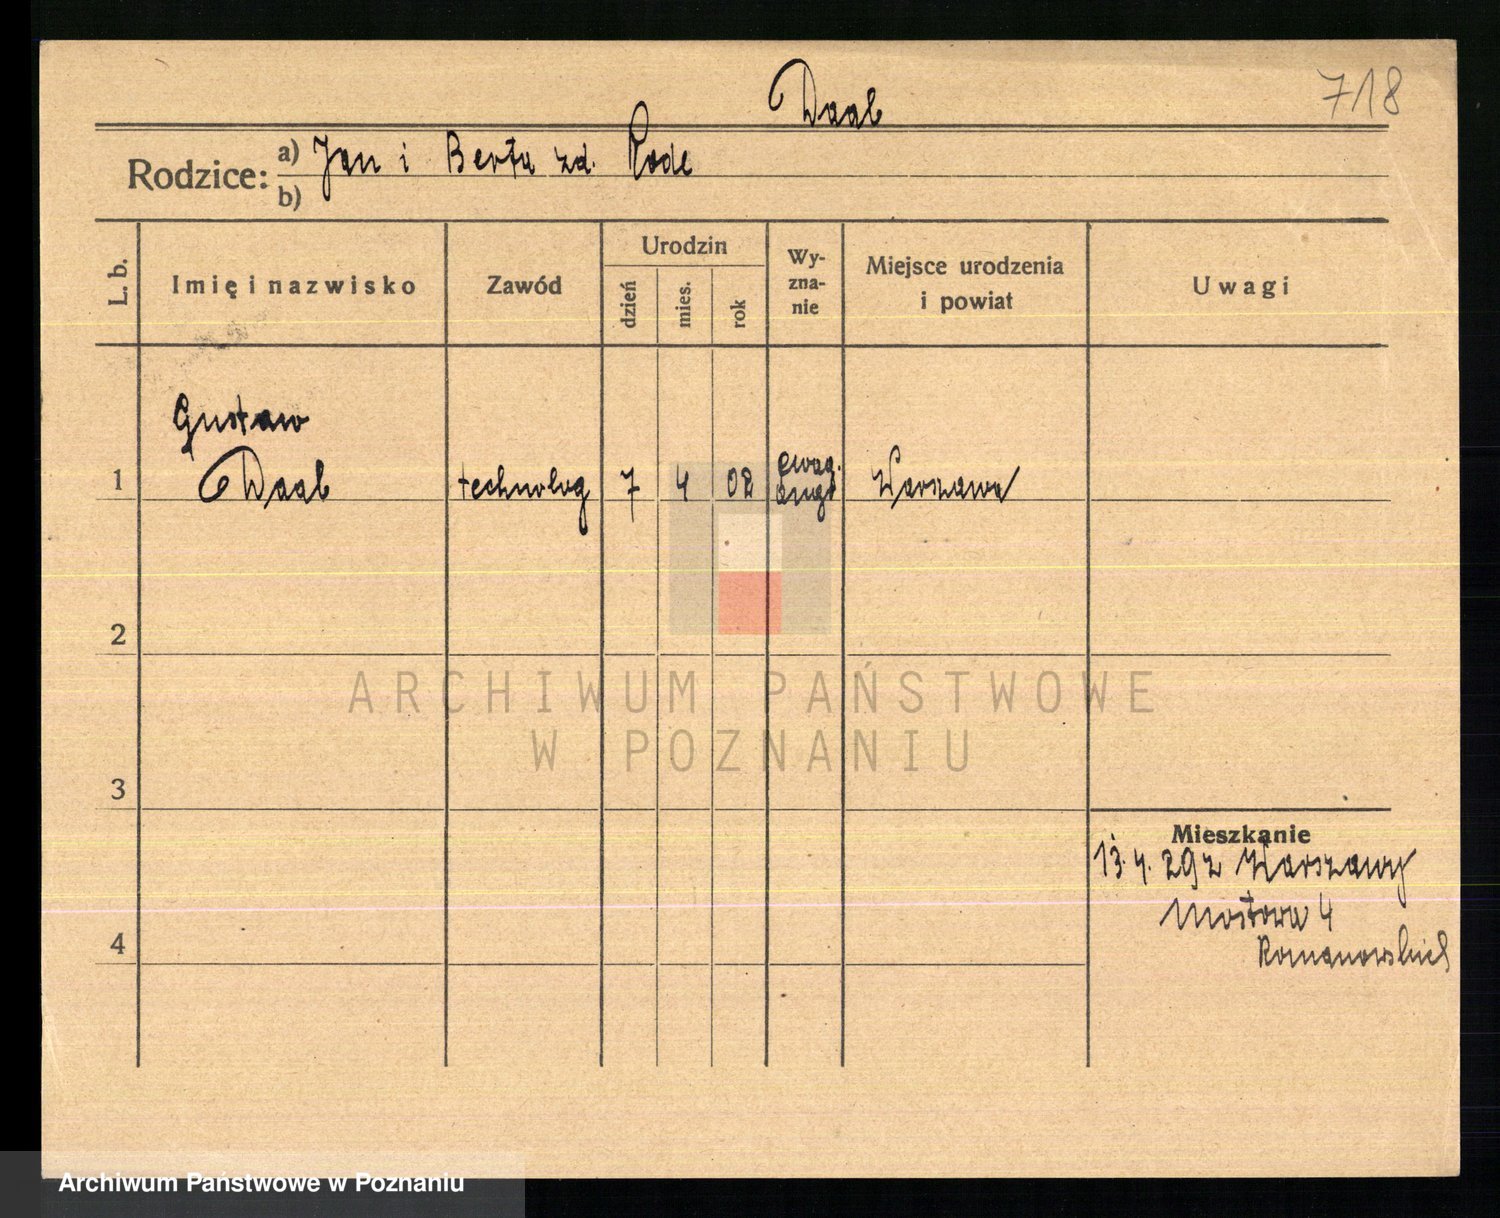 Daab
718
Rodzice:
a) Jan i Berta zd. Rode
b)
L. b.
Imię i nazwisko
Zawód
Urodzin
dzień
mies.
rok
Wy-
zna-
nie
Miejsce urodzenia
i powiat
Uwagi
Gustaw
1 Daab technolog 7 4 08 ewag. augs Warszawa
2
3
4
Mieszkanie
13. 4. 29 z Warszawy
Mostowa 4
ARCHIWUM PAŃSTWOWE
W POZNANIU
Archiwum Państwowe w Poznaniu